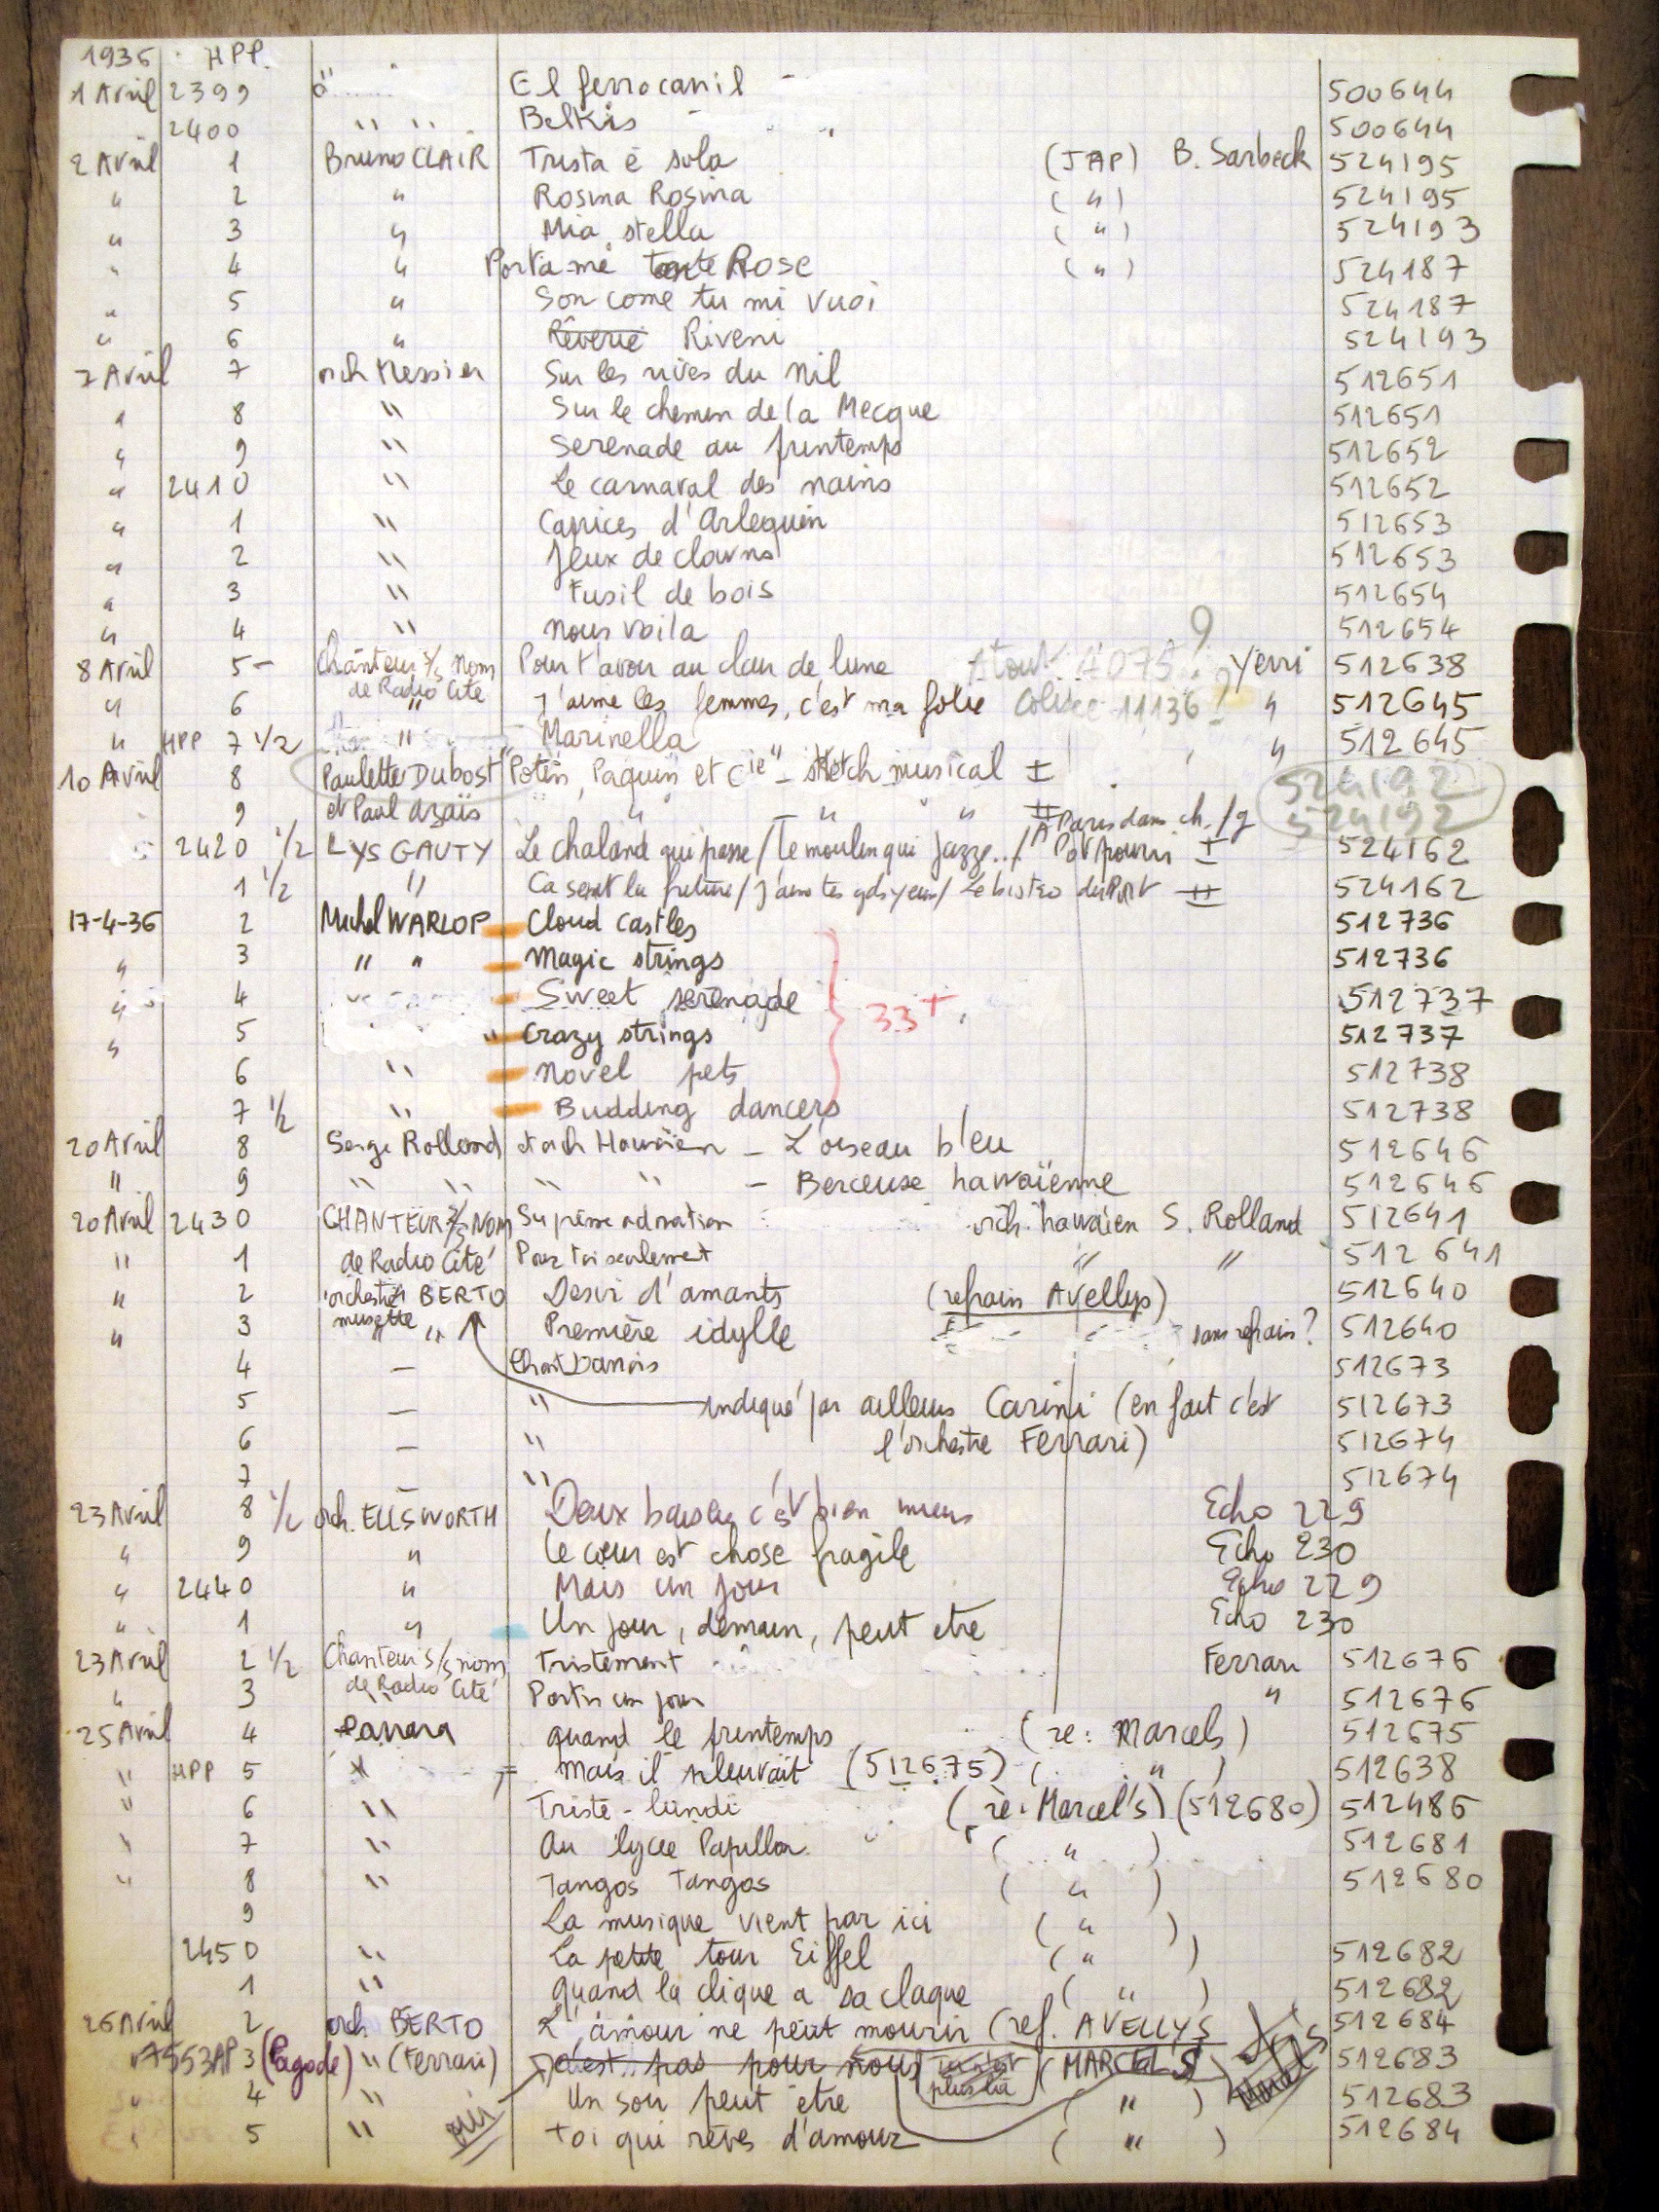 1936 HPP.
1 Avril 2399 El ferrocarril 500644
2400 " " Belkis 500644
2 Avril 1 Bruno CLAIR Trista è sola (JAP) B. Sarbeck 524195
" 2 " Rosina Rosina (") 524195
" 3 " Mia stella (") 524193
" 4 " Portami tante Rose (") 524187
" 5 " Son come tu mi vuoi 524187
" 6 " Rêverie Riveni 524193
7 Avril 7 orch Messier Sur les rives du Nil 512651
" 8 " Sur le chemin de la Mecque 512651
" 9 " Serenade au printemps 512652
" 2410 " Le carnaval des nains 512652
" 1 " Caprices d'Arlequin 512653
" 2 " Jeux de clowns 512653
" 3 " Fusil de bois 512654
" 4 " Nous voila 512654
8 Avril 5 - Chanteur s/s nom Pour t'avoir au clair de lune Atout 4075 ? Yerri 512638
de Radio Cité
" 6 " J'aime les femmes, c'est ma folie Colisée 11136 ? " 512645
" HPP 7 1/2 " Marinella " 512645
10 Avril 8 Paulette Dubost "Potin, Paquin et Cie" - sketch musical I 524192
9 et Paul Azaïs " " " II 524192
A Paris dans ch. /q
2420 1/2 LYS GAUTY Le chaland qui passe / Le moulin qui jazze../ Pot pourri I 524162
1 1/2 " Ca sent la friture / J'aime tes gds yeux / Le bistro du Port II 524162
17-4-36 2 Michel WARLOP Cloud castles 512736
" 3 " " Magic strings 512736
" 4 Sweet serenade 512737
33 T.
" 5 " Crazy strings 512737
6 " Novel pets 512738
7 1/2 " Budding dancers 512738
20 Avril 8 Serge Rolland et orch Hawaïen - L'oiseau bleu 512646
" 9 " " " " - Berceuse hawaïenne 512646
20 Avril 2430 CHANTEUR S/S NOM Suprême adoration orch. hawaien S. Rolland 512641
" 1 de Radio Cité Pour toi seulement " " 512641
" 2 orchestre BERTO Desir d'amants (refrain Avellys) 512640
musette
" 3 " " Première idylle sans refrain? 512640
4 - Chant Danois 512673
5 - " indiqué par ailleurs Carini (en fait c'est 512673
6 - " l'orchestre Ferrari) 512674
7 - " 512674
23 Avril 8 1/2 orch. ELLSWORTH Deux baisers c'est bien mieux Echo 229
" 9 " Le cœur est chose fragile Echo 230
" 2440 " Mais un jour Echo 229
" 1 " Un jour, demain, peut etre Echo 230
23 Avril 2 1/2 Chanteur s/s nom Tristement Ferrari 512676
de Radio Cité
" 3 Partir un jour " 512676
25 Avril 4 Carrara quand le printemps (re: Marcels) 512675
" HPP 5 " Mais il pleuvait (512675) ( " ) 512638
" 6 " Triste-lundi (re: Marcel's) (512680) 512486
" 7 " Au lycée Papillon ( " ) 512681
" 8 " Tangos Tangos ( " ) 512680
9 La musique vient par ici ( " )
2450 " La petite tour Eiffel ( " ) 512682
1 " Quand la clique a sa claque ( " ) 512682
26 Avril 2 orch BERTO L'amour ne peut mourir (ref. AVELLYS 512684
A553AP 3 (Pagode) " (Ferrari) c'est pas pour nous plus là (MARCEL S) 512683
" 4 " Un soir peut être ( " ) 512683
oui
" 5 " toi qui rêves d'amour ( " ) 512684